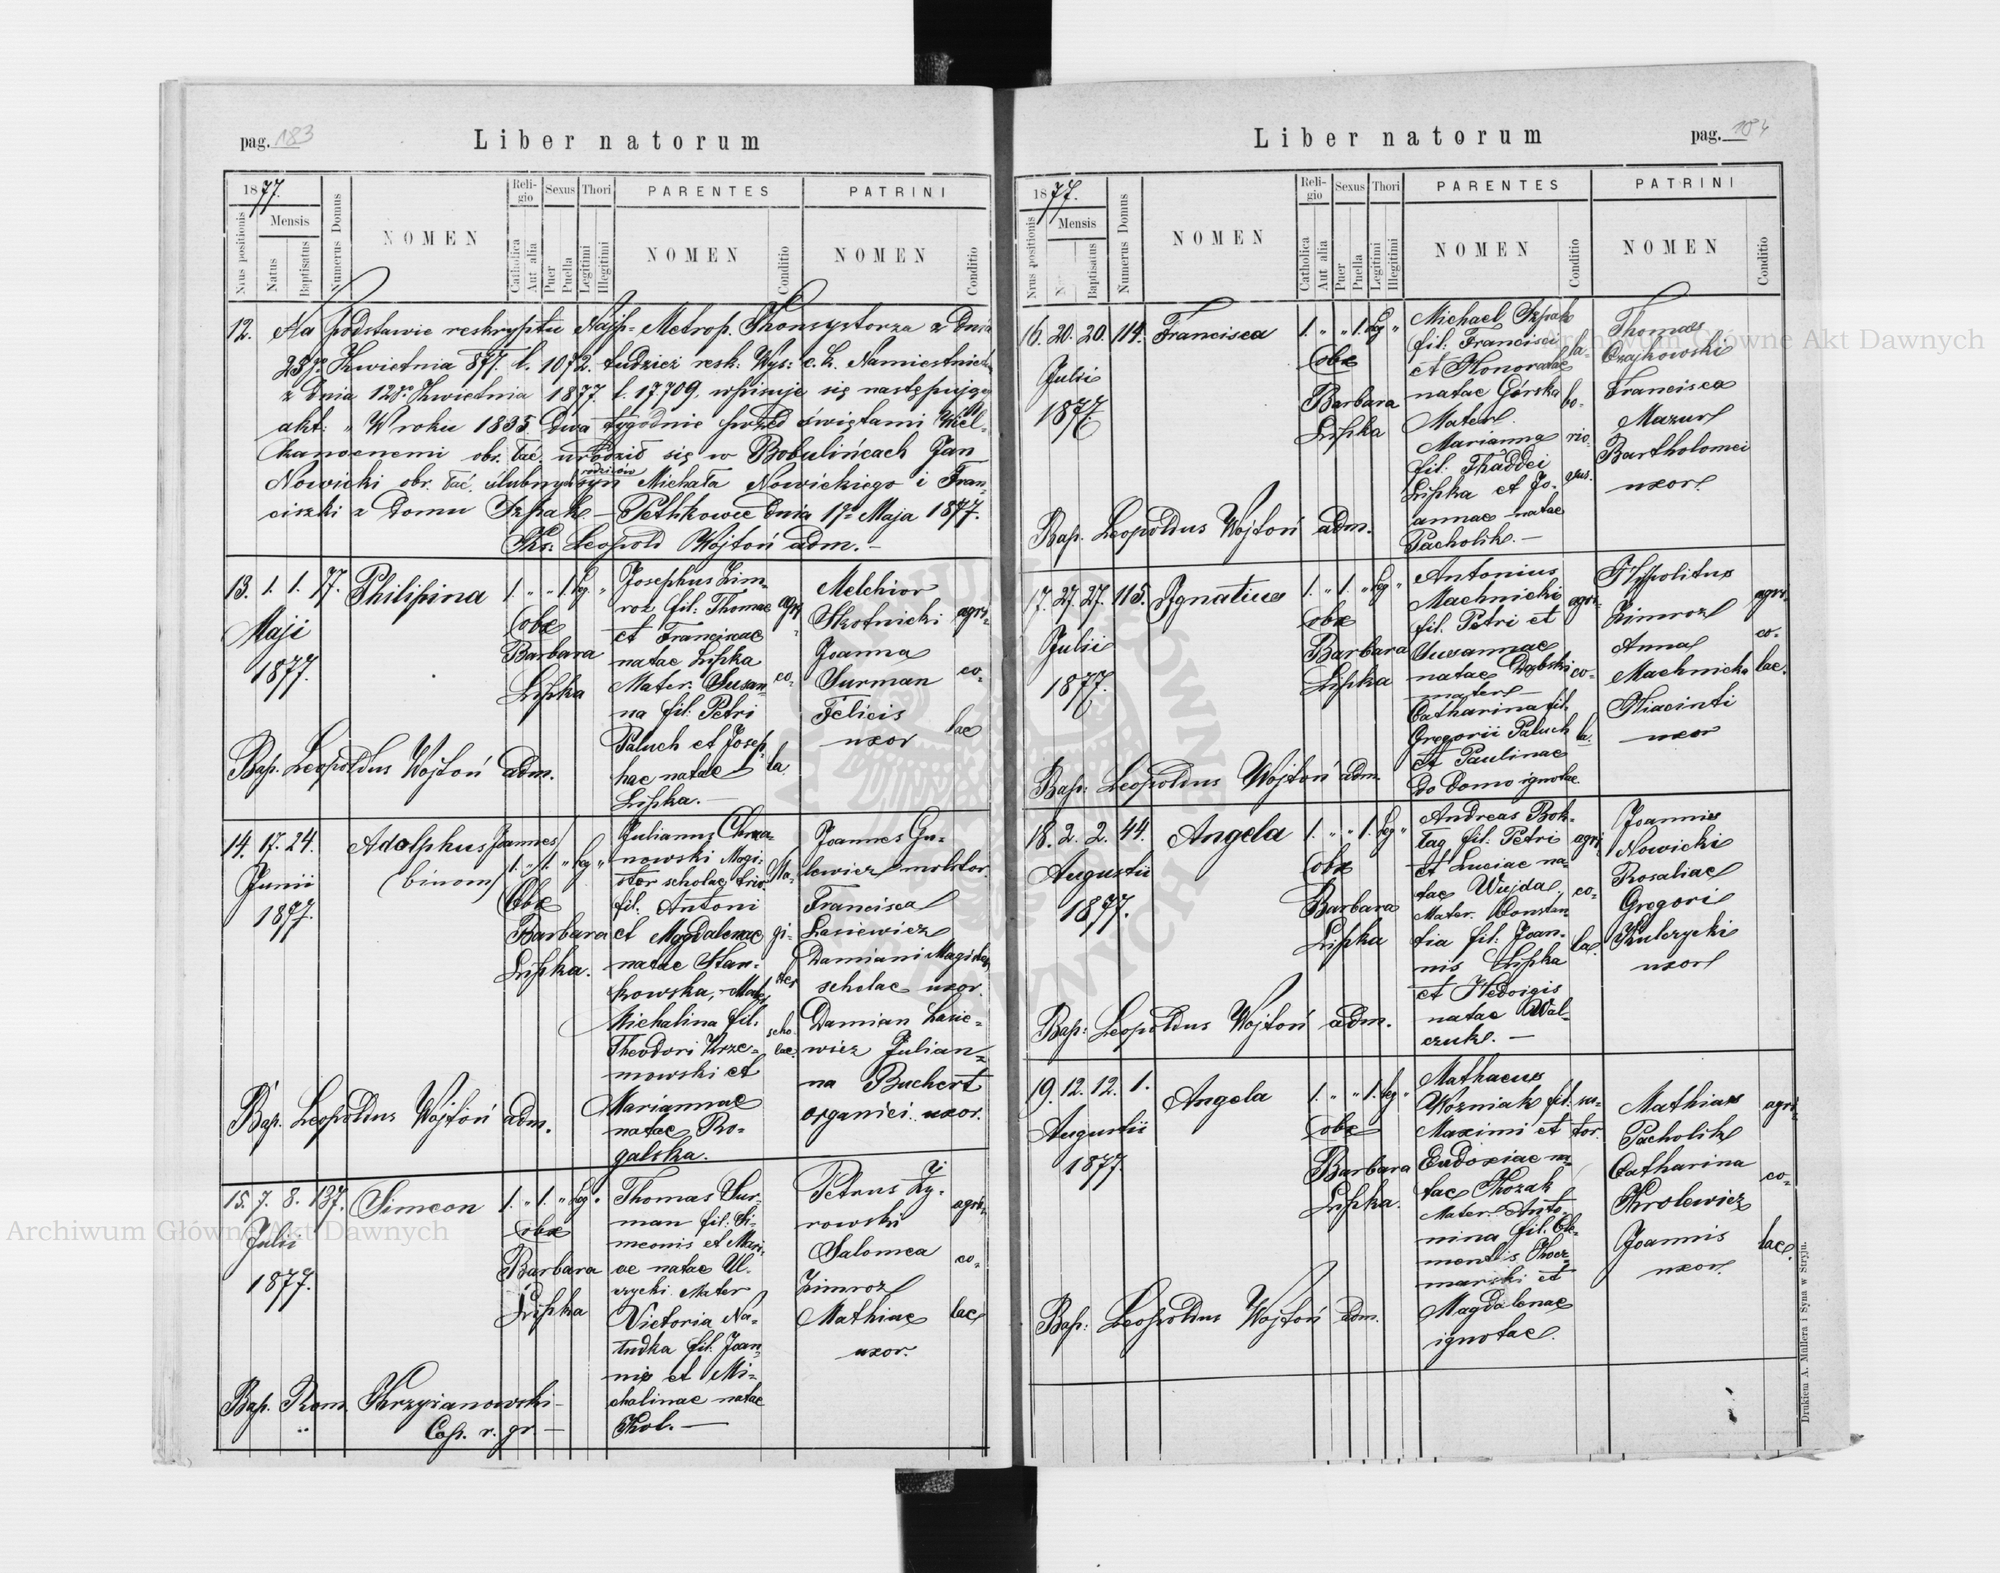 pag. 183
Liber natorum
1877.
Nrus positionis
Mensis
Natus
Baptisatus
Numerus Domus
NOMEN
Religio
Catholica
Aut alia
Sexus
Puer
Puella
Thori
Legitimi
Illegitimi
PARENTES
NOMEN
Conditio
PATRINI
NOMEN
Conditio
12. Na podstawie reskryptu Najp. Metrop. Konsystorza z dnia
Kwietnia 877. l. 1072. tudzież resk: Wys: c. k. Namiestnict.
z dnia 12go Kwietnia 1877. l. 17.709, wpisuje się następujący
akt: „W roku 1835 dwa tygodnie przed świętami Wiel-
kanocnemi obr. łać. urodził się w Bobulińcach Jan
Nowicki obr. łać. ślubnych rodziców syn Michała Nowickiego i Fran-
ciszki z domu Szpak. – Petlikowce dnia Maja 1877.
Ks: Leopold Wojtoń adm. –
13. 1. 1. 77. Philipina 1. „ „ 1. leg „
Maji
1877.
Obx
Barbara
Lipka
Josephus Zim-
roz fil: Thomae
et Franciscae
natae Lipka
Mater: Susan-
na fil: Petri
Paluch et Josep-
hae natae
Lipka. –
agri-
co-
la
Melchior
Skotnicki
Joanna
Surman
Felicis
uxor
agri-
co-
lae
Bap. Leopoldus Wojtoń adm.
14. 17. 24. Adolphus Joannes
(binom) 1. „ 1. „ leg „
Junii
1877.
Obx
Barbara
Lipka.
nowski Magi-
ster scholae triv.
fil: Antoni
et Magdalenae
natae Stan-
kowska, – Mater
Michalina fil:
Theodori Krze-
mowski et
Mariannae
natae Ro-
galska.
Ma-
gi-
ster
scho-
lae.
Joannes Gu-
lewicz molitor
Francisca
Lasiewicz
Damiani Magistri
scholae uxor.
Damian Lasie-
wicz Julian-
na Buchert
organici uxor.
Bap. Leopoldus Wojtoń adm.
15. 7. 8. 137. Simeon 1. „ 1. „ leg „
Julii
1877.
Obx
Barbara
Lipka
Thomas Sur-
man fil: Si-
meonis et Mari-
ae natae Ul-
czycki Mater
Victoria Na-
tudka fil: Joan-
nis et Mi-
chalinae natae
Kol. –
Petrus Ży-
rowski
Salomea
Zimroz
Mathiae
uxor.
agri-
co-
lae
Bap. Rom. Krzyżanowski –
Cap. r. gr. –
Liber natorum
pag. 184
1877.
Nrus positionis
Mensis
Baptisatus
Numerus Domus
NOMEN
Religio
Catholica
Aut alia
Sexus
Puer
Puella
Thori
Legitimi
Illegitimi
PARENTES
NOMEN
Conditio
PATRINI
NOMEN
Conditio
16. 20. 20. 114. Francisca 1. „ „ 1. leg „
Julii
1877.
Obx
Barbara
Lipka
Michael Szpak
fil: Francisci
et Honoratae
natae Górska
Mater
Marianna
fil: Thaddei
Lipka et Jo-
annae natae
Pacholik. –
la-
bo-
rio-
sus.
Thomas
Czajkowski
Francisca
Mazur
Bartholomei
uxor.
Bap. Leopoldus Wojtoń adm.
17. 27. 27. 115. Ignatius 1. „ 1. „ leg „
Julii
1877.
Obx
Barbara
Lipka
Antonius
Machnicki
fil. Petri et
Susannae
natae Dąbski
mater –
Catharina fil.
Gregorii Paluch
et Paulinae
do domo ignotae.
agri-
co-
la.
Hyppolitus
Zimroz
Anna
Machnicka
Hiacinti
uxor
agri-
co-
lae.
Bap: Leopoldus Wojtoń adm.
18. 2. 2. 44. Angela 1. „ „ 1. leg „
Augusti
1877.
Obx
Barbara
Lipka
Andreas Bok-
tag fil: Petri
et Luciae na-
tae Wujda,
Mater. Constan-
tia fil: Joan-
nis Lipka
et Hedvigis
natae Wal-
czuk. –
agri-
co-
la.
Joannes
Nowicki
Rosaliae
Gregori
Kulczycki
uxor
Bap: Leopoldus Wojtoń adm.
19. 12. 12. 1. Angela 1. „ „ 1. leg „
Augusti
1877.
Obx
Barbara
Lipka.
Mathaeus
Woźniak fil:
Maximi et
Eudoxiae na-
tae Kozak
Mater. Anto-
nina fil: Cle-
mentis Kacz-
marski et
Magdalenae
ignotae.
su-
tor.
Mathias
Pacholik
Catharina
Krolewicz
Joannis
uxor.
agri-
co-
lae.
Bap: Leopoldus Wojtoń adm.
Drukiem A. Mullera i Syna w Stryju.
Archiwum Główne Akt Dawnych
Archiwum Główne Akt Dawnych